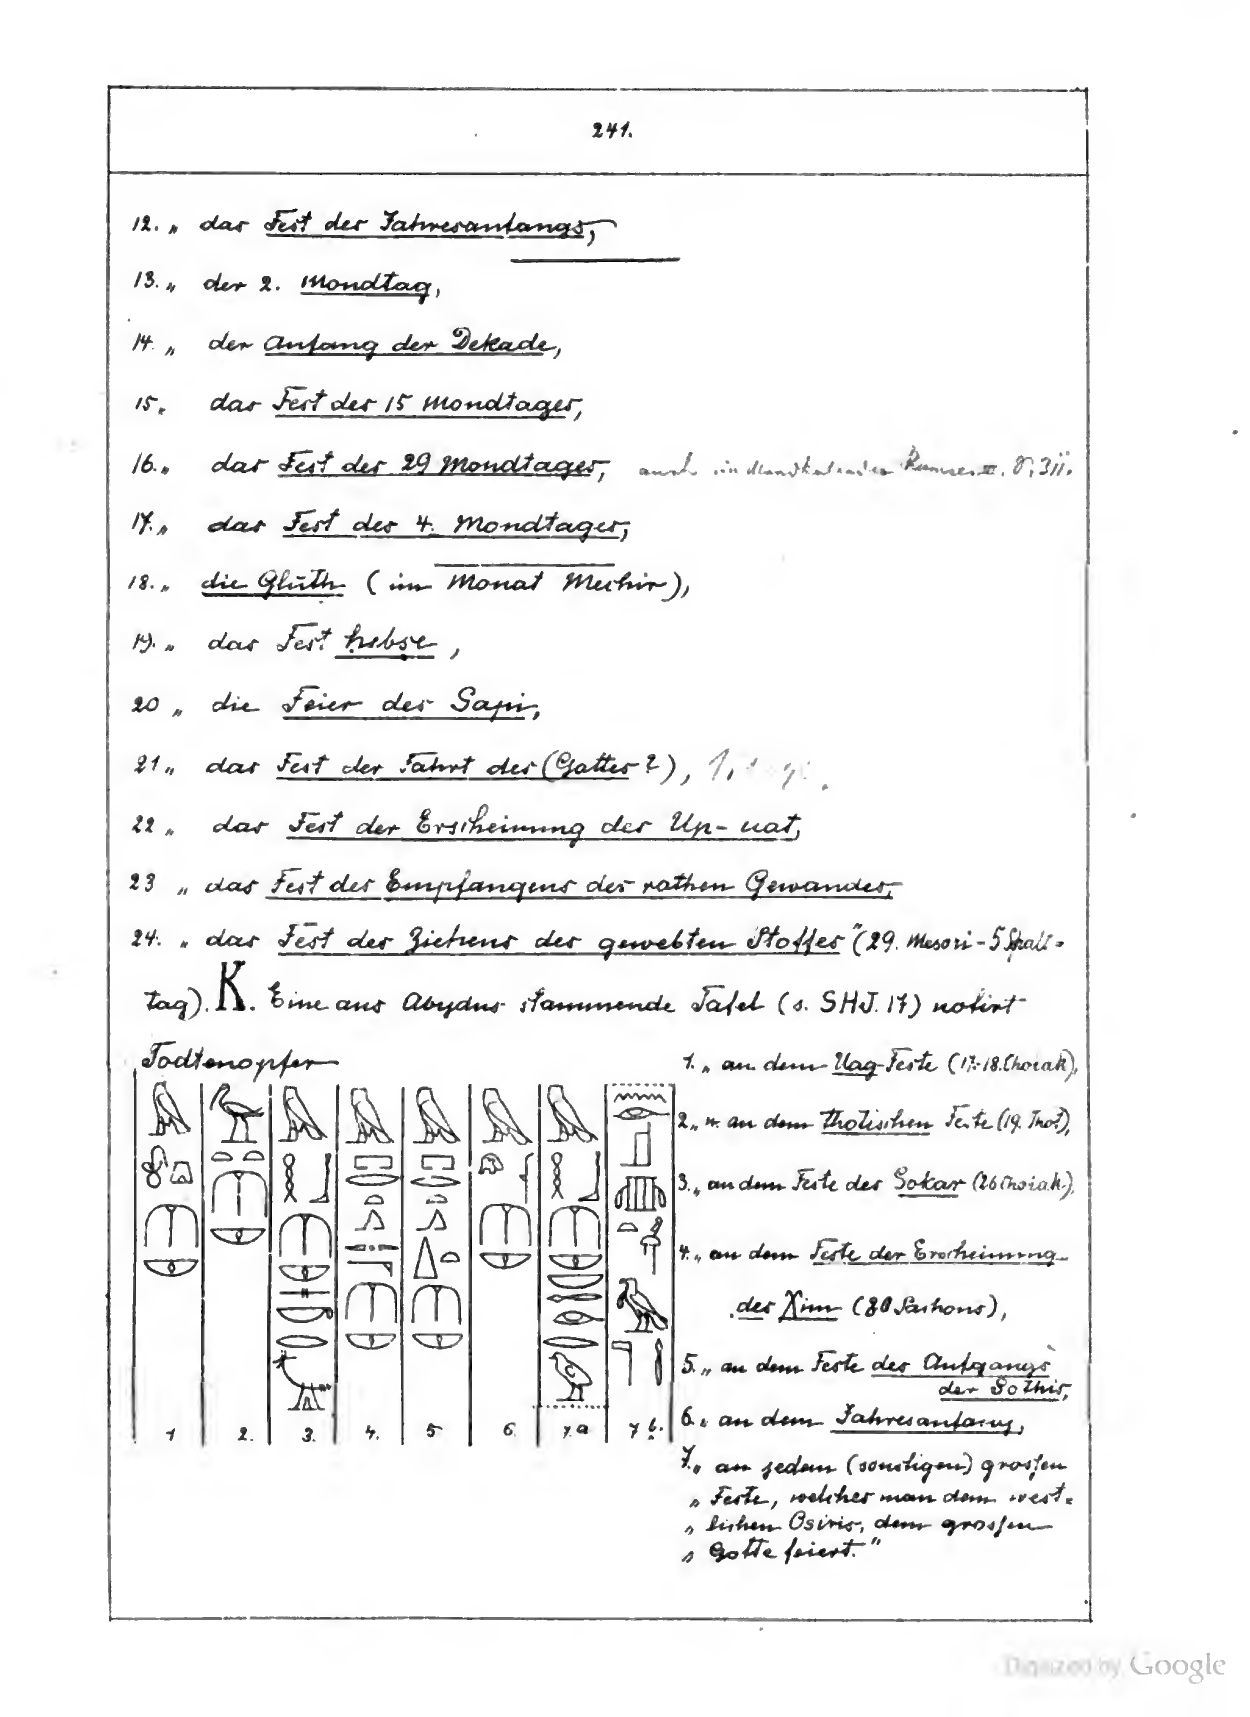 241.
12. „ das Fest des Jahresanfangs,
13. „ der 2. Mondtag,
14. „ der Anfang der Dekade,
15. das Fest des 15 Mondtages,
16. „ das Fest des 29 Mondtages, auch im
17. „ das Fest des 4. Mondtages,
18. „ die Gluth (im Monat Mechir),
19. „ das Fest hebse,
20 „ die Feier des Sapi,
21 „ das Fest der Fahrt des (Gottes?),
22 „ das Fest der Erscheinung des Up-uat,
23 „ das Fest des Empfangens des rothen Gewandes,
24. „ das Fest des Ziehens des gewebten Stoffes" (29. Mesori - 5 Schalt-
tag). K. Eine aus Abydus stammende Tafel (s. SHJ. 17) notirt
Todtenopfer
1. „ an dem Uag-Feste (17-18. Choiak),
2. „ an dem thotischen Feste (19. Thot),
3. „ an dem Feste des Sokar (26 Choiak),
4. „ an dem Feste der Erscheinung
des Xim (30 Pachons),
5. „ an dem Feste des Aufgangs
der Sothis,
6. „ an dem Jahresanfang,
7. „ an jedem (sonstigen) grossen
„ Feste, welches man dem west-
„ lichen Osiris, dem grossen
„ Gotte feiert."
1 2. 3. 4. 5 6. 7.a 7 b.
Digitized by Google